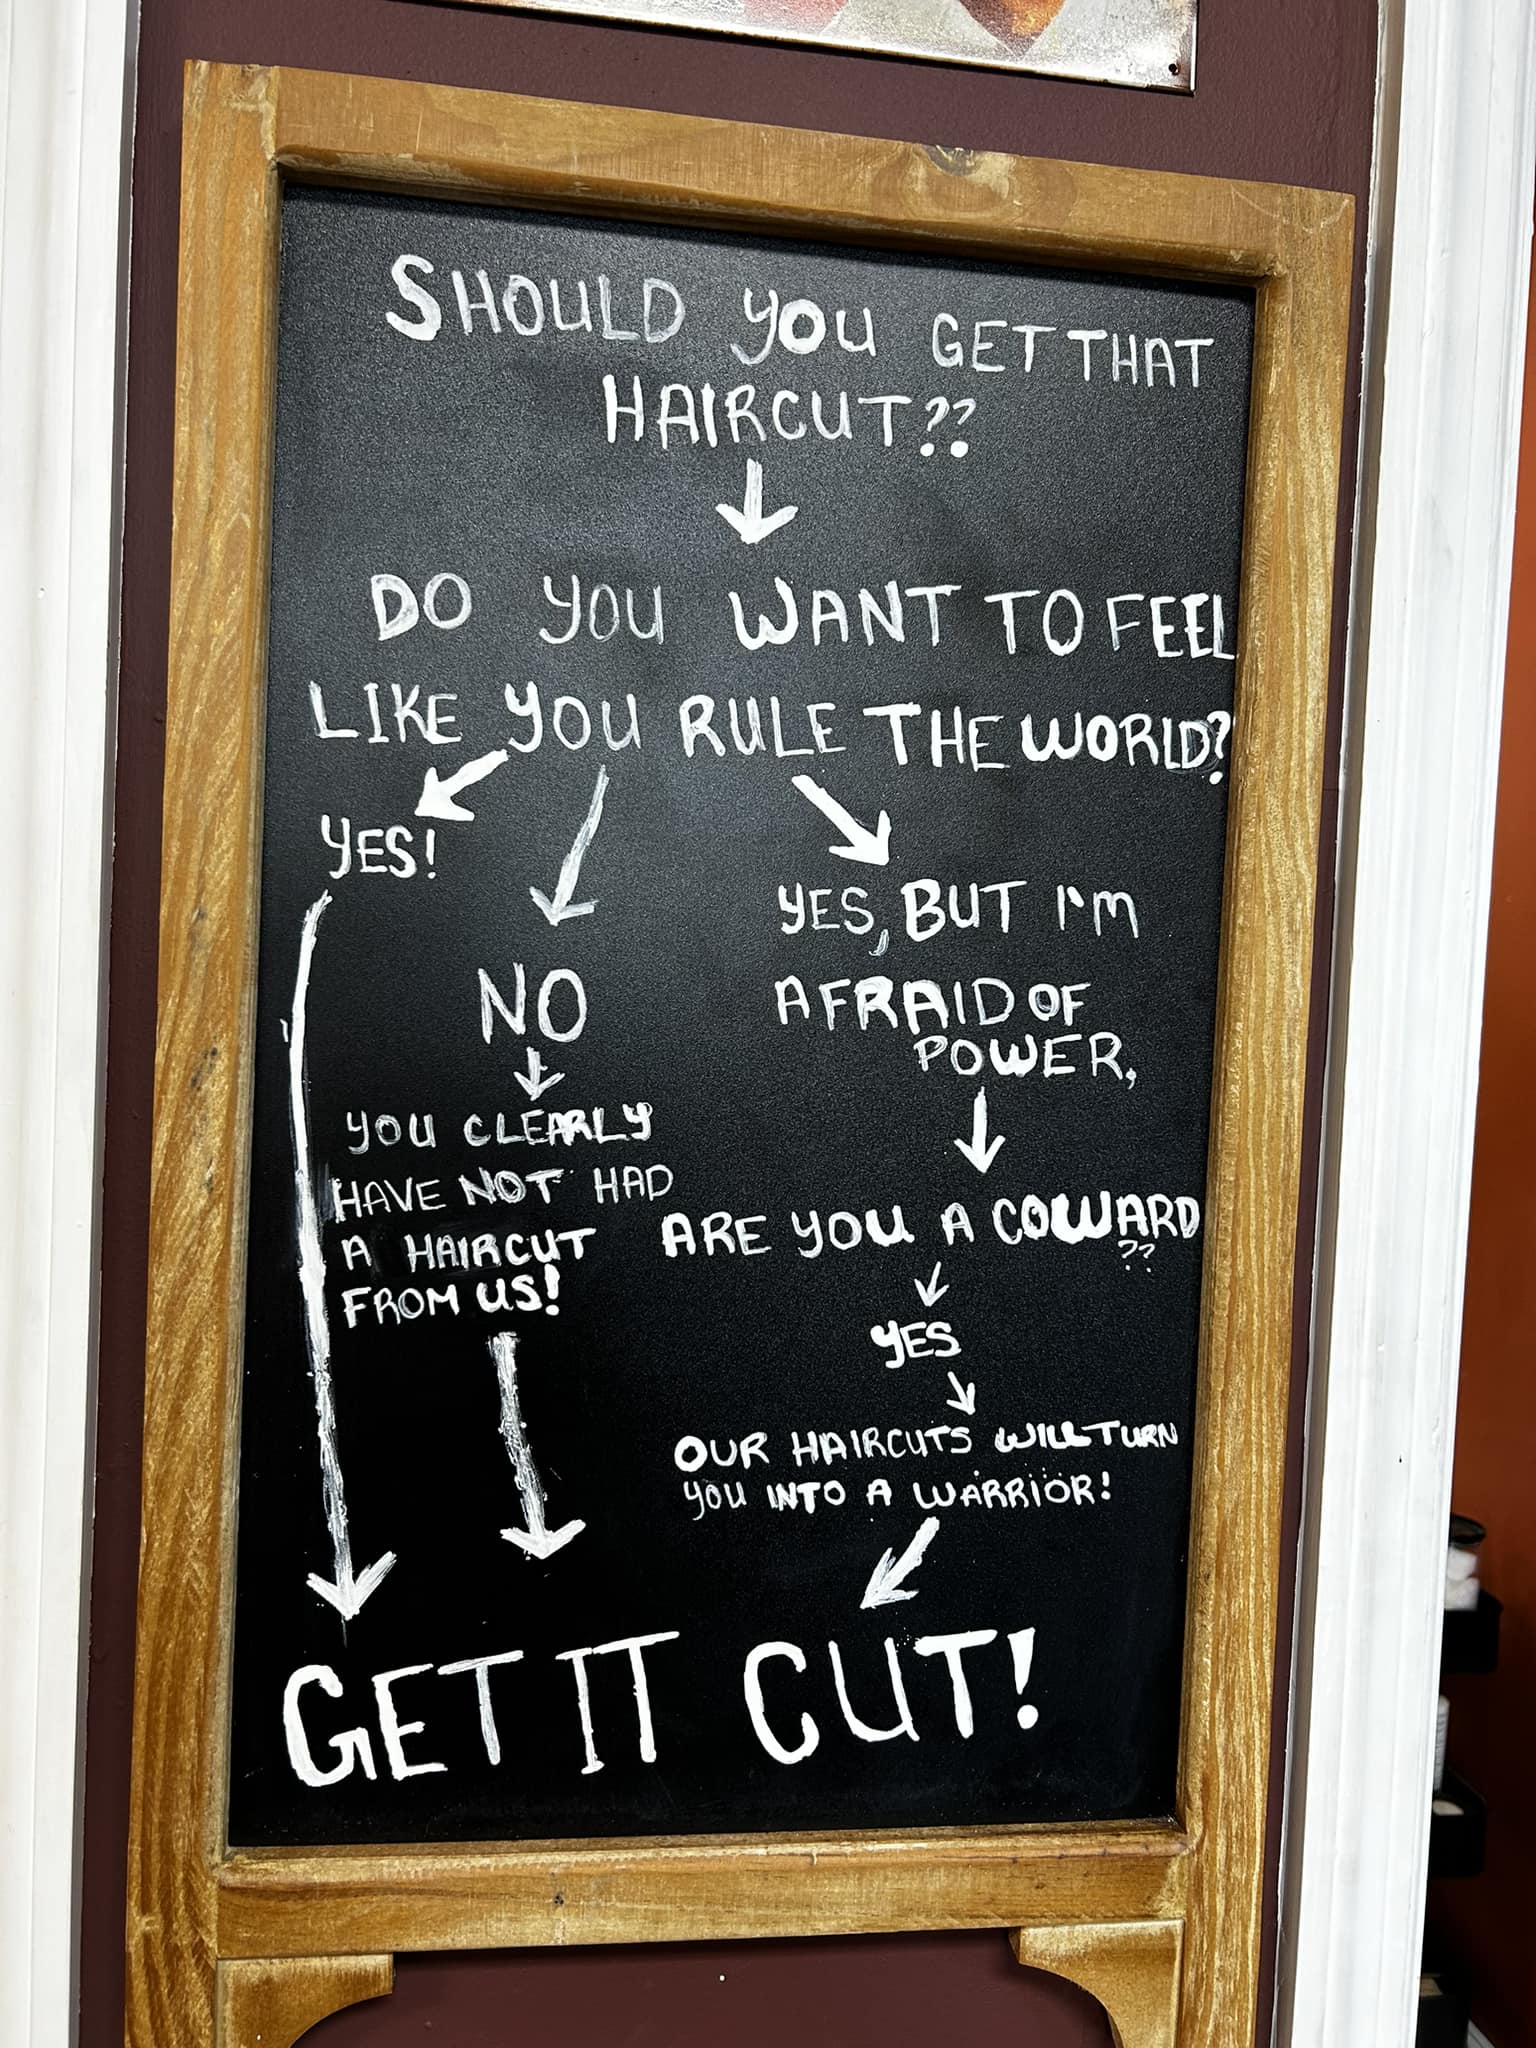 SHOULD YOU GET THAT
HAIRCUT??
DO YOU WANT TO FEEL
LIKE YOU RULE THE WORLD?
YES!
NO
YOU CLEARLY
HAVE NOT HAD
A HAIRCUT
FROM US!
YES, BUT I'M
AFRAID OF
POWER,
ARE YOU A COWARD
??
YES
OUR HAIRCUTS WILL TURN
YOU INTO A WARRIOR!
GET IT CUT!